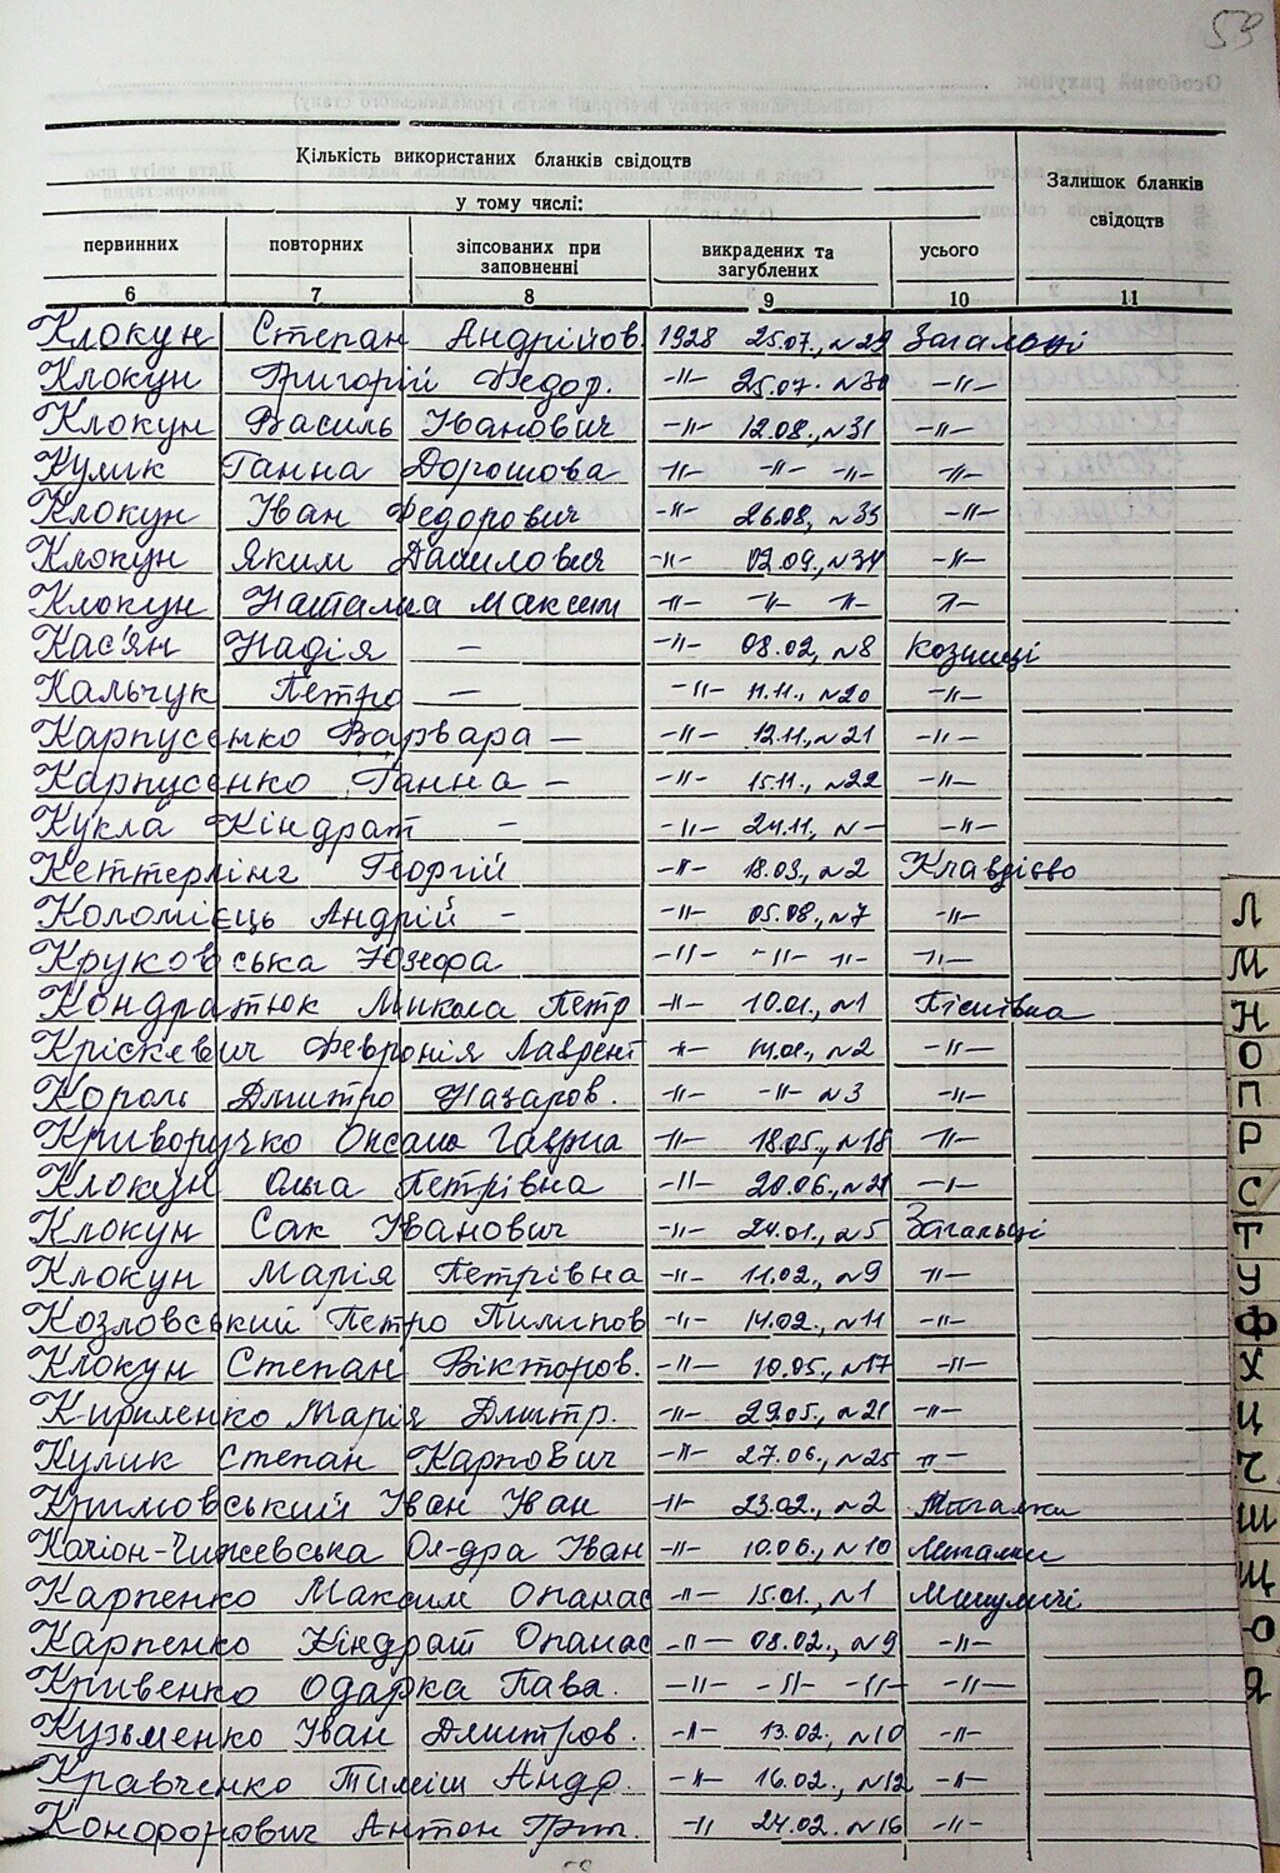 59
Кількість використаних бланків свідоцтв
Залишок бланків свідоцтв
у тому числі:
первинних повторних зіпсованих при заповненні викрадених та загублених усього
6 7 8 9 10 11
Клокун Степан Андрійов. 1928 25.07., N29 Загальці
Клокун Григорій Федор. -"- 25.07. N30 -"-
Клокун Василь Іванович -"- 12.08., N31 -"-
Кулик Ганна Дорошова -"- -"- -"- -"-
Клокун Іван Федорович -"- 26.08, N33 -"-
Клокун Яким Данилович -"- 02.09., N34 -"-
Клокун Наталка Максим -"- -"- -"- -"-
Кас'ян Надія - -"- 08.02, N8 Козинці
Кальчук Петро - -"- 11.11., N20 -"-
Карпусенко Варвара - -"- 12.11., N21 -"-
Карпусенко Ганна - -"- 15.11., N22 -"-
Кукла Кіндрат - -"- 24.11., N- -"-
Кеттерлінг Георгій -"- 18.03., N2 Клавдієво
Коломієць Андрій - -"- 05.08., N7 -"-
Круковська Юзефа -"- -"- -"- -"-
Кондратюк Микола Петр -"- 10.01., N1 Пісківка
Кріскевич Февронія Лаврент -"- 14.01., N2 -"-
Король Дмитро Назаров. -"- -"- N3 -"-
Криворучко Оксана Гаврил -"- 18.05., N18 -"-
Клокун Ольга Петрівна -"- 20.06., N21 -"-
Клокун Сак Іванович -"- 24.01., N5 Загальці
Клокун Марія Петрівна -"- 11.02., N9 -"-
Козловський Петро Пилипов -"- 14.02., N11 -"-
Клокун Степан Вікторов. -"- 10.05., N17 -"-
Кириленко Марія Дмитр. -"- 29.05., N21 -"-
Кулик Степан Карпович -"- 27.06., N25 -"-
Кримовський Іван Іван -"- 23.02., N2 Мигалки
Качіон-Чижевська Ол-дра Іван -"- 10.06., N10 Мигалки
Карпенко Максим Опанас -"- 15.01., N1 Микуличі
Карпенко Кіндрат Опанас -"- 08.02., N9 -"-
Кривенко Одарка Павл. -"- -"- -"- -"-
Кузьменко Іван Дмитров. -"- 13.02., N10 -"-
Кравченко Тиміш Андр. -"- 16.02., N12 -"-
Конoронович Антон Григ. -"- 24.02. N16 -"-
Л
М
Н
О
П
Р
С
Т
У
Ф
Х
Ц
Ч
Ш
Щ
Ю
Я